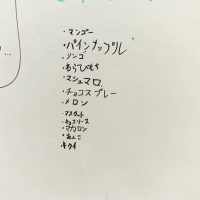 ・マンゴー
・パインナップル
・リンゴ
・わらびもち
・マシュマロ
・チョコスプレー
・メロン
・マスカット
・チョコソース
・マカロン
・あんこ
キウイ